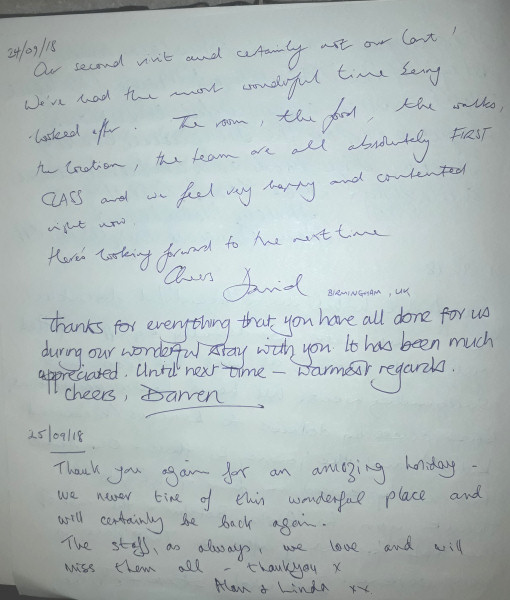 24/09/18
Our second visit and certainly not our last!
We've had the most wonderful time being
looked after. The room, the food, the walks,
the location, the team are all absolutely FIRST
CLASS and we feel very happy and contented
right now
Here's looking forward to the next time
Cheers David BIRMINGHAM, UK
Thanks for everything that you have all done for us
during our wonderful stay with you. It has been much
appreciated. Until next time – warmest regards.
cheers, Darren
25/09/18
Thank you again for an amazing holiday -
we never tire of this wonderful place and
will certainly be back again.
The staff, as always, we love and will
miss them all – thankyou x
Alan & Linda xx